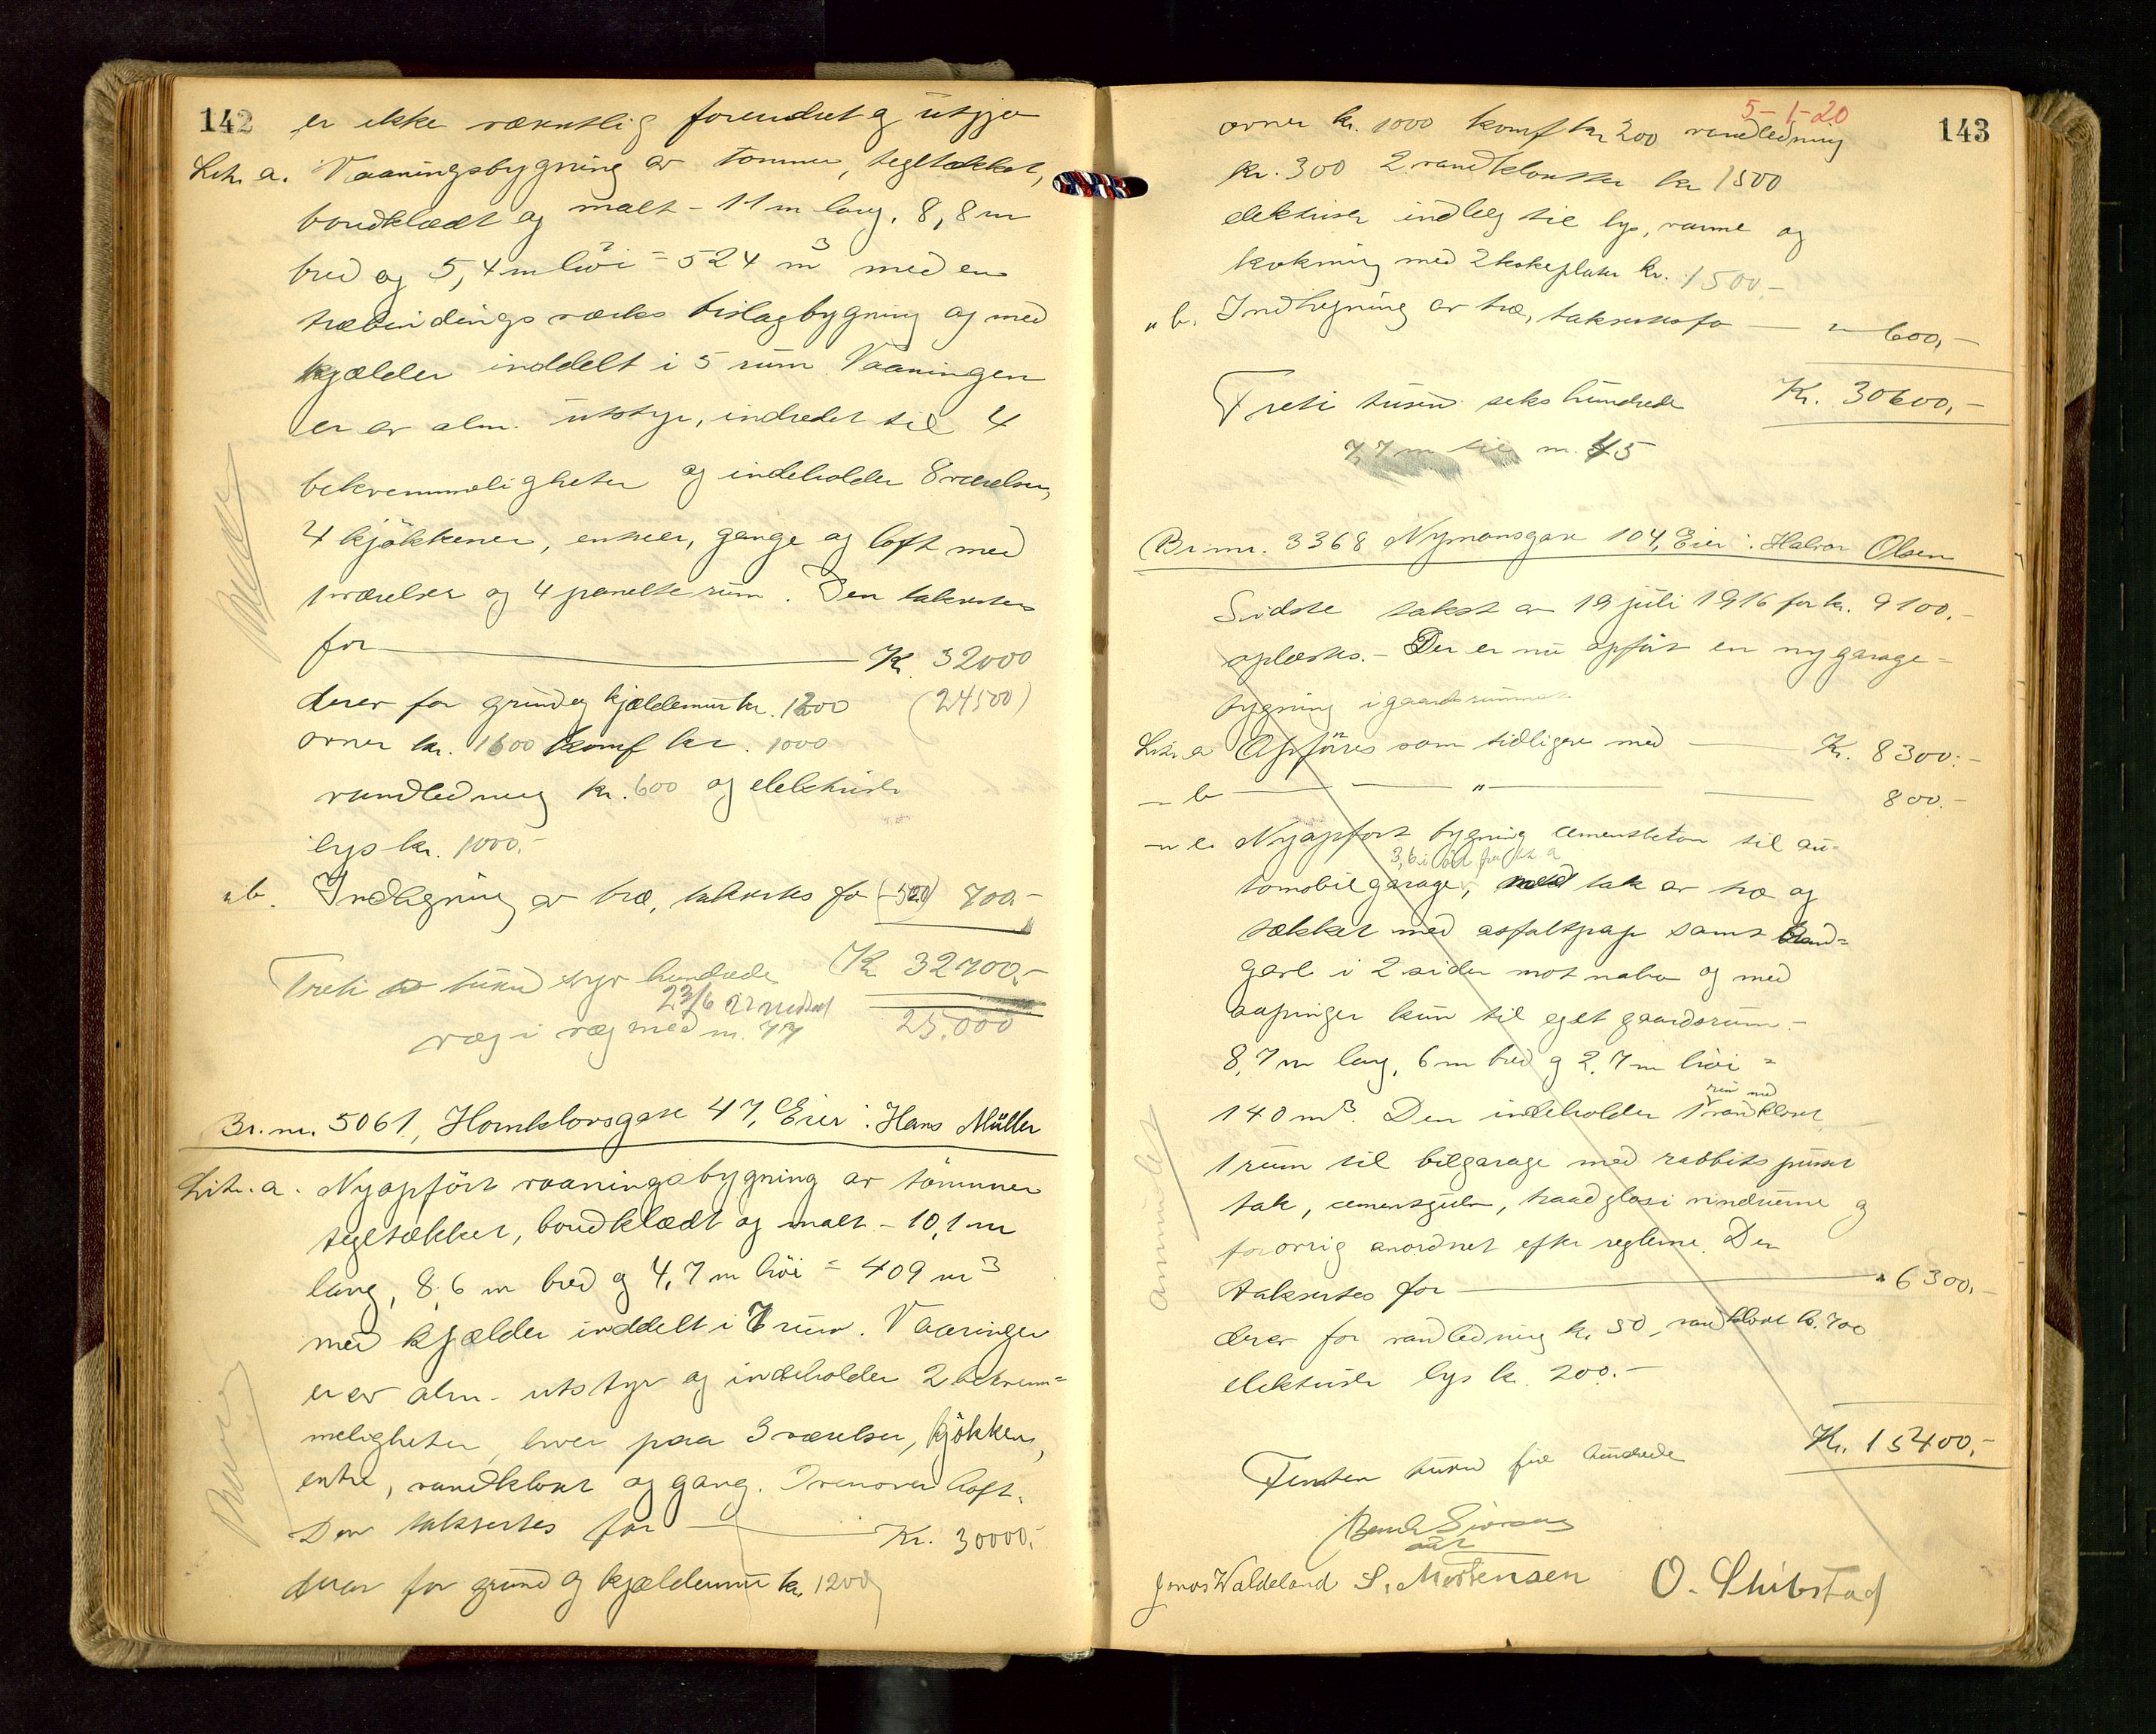 142
er ikke væsentlig forendret og utgjør
Litr. a. Vaaningsbygning av tømmer, tegltækket,
bordklædt og malt - 11 m lang, 8,8 m
bred og 5,4 m høi = 524 m3 med en
træbindingsverks bislagbygning og med
kjælder inddelt i 5 rum. Vaaningen
er av alm. utstyr, indredet til 4
bekvemmeligheter og indeholder 8 værelser,
4 kjøkkener, entreer, gange og loft med
1 værelse og 4 panelte rum. Den taksertes
for Kr. 32000
derav for grund og kjældermur kr. 1200 (24500)
ovner kr. 1600 komf kr. 1000
vandledning kr. 600 og elektrisk
lys kr. 1000.-
" b. Indhegning av træ, taksertes for (500) 700.-
Kr. 32700.-
Treti to tusen syv hundrede
23/6 22 nedsat
væg i væg med nr. 49 25.000
Br. nr. 5061, Hornklovsgate 47, Eier: Hans Müller
Litr. a. Nyopført vaaningsbygning av tømmer
tegltækket, bordklædt og malt - 10,1 m
lang, 8,6 m bred og 4,7 m høi = 409 m3
med kjælder inddelt i 7 rum. Vaaningen
er av alm. utstyr og indeholder 2 bekvem=
meligheter, hver paa 3 værelser, kjøkken,
entre, vandklosett og gang. Ovenover loft.
Den taksertes for Kr. 30000.-
derav for grund og kjældermur kr. 1200,
5-1-20
143
ovner kr. 1000 komf kr 200 vandledning
kr. 300 2 vandklosetter kr 1500
elektrisk indlæg til lys, varme og
kokning med 2 kokeplater kr. 1500.-
" b. Indhegning av træ, taksertes for " 600,-
Kr. 30600,-
Treti tusen seks hundrede
7,7 m til nr. 45
Br. nr. 3368 Nymansgate 104, Eier: Halvor Olsen
Sidste takst av 19 juli 1916 for kr. 9100,-
oplæstes. - Der er nu opført en ny garage=
bygning i gaardsrummet
Litr. a Opføres som tidligere med Kr. 8300.-
" b " 800.-
" c. Nyopført bygning cementbeton til au=
3,6 i öst fra litr. a
tomobilgarage, med tak av træ og
tækket med asfaltpap samt brand=
gavl i 2 sider mot nabo og med
aapninger kun til eget gaardsrum.-
8,7 m lang, 6 m bred og 2,7 m høi =
140 m3. Den indeholder 1 rum med vandklosett
1 rum til bilgarage med rabbits pusset
tak, cementgulv, traadglas i vinduerne og
forøvrig anordnet efter reglerne. Den
taksertes for " 6300.-
derav for vandledning kr. 50, vandklosett kr. 700
elektrisk lys kr. 200.-
Kr. 15400,-
Femten tusen fire hundrede
Jonas Waldeland S. Mortensen O. Skibstad
annuleret